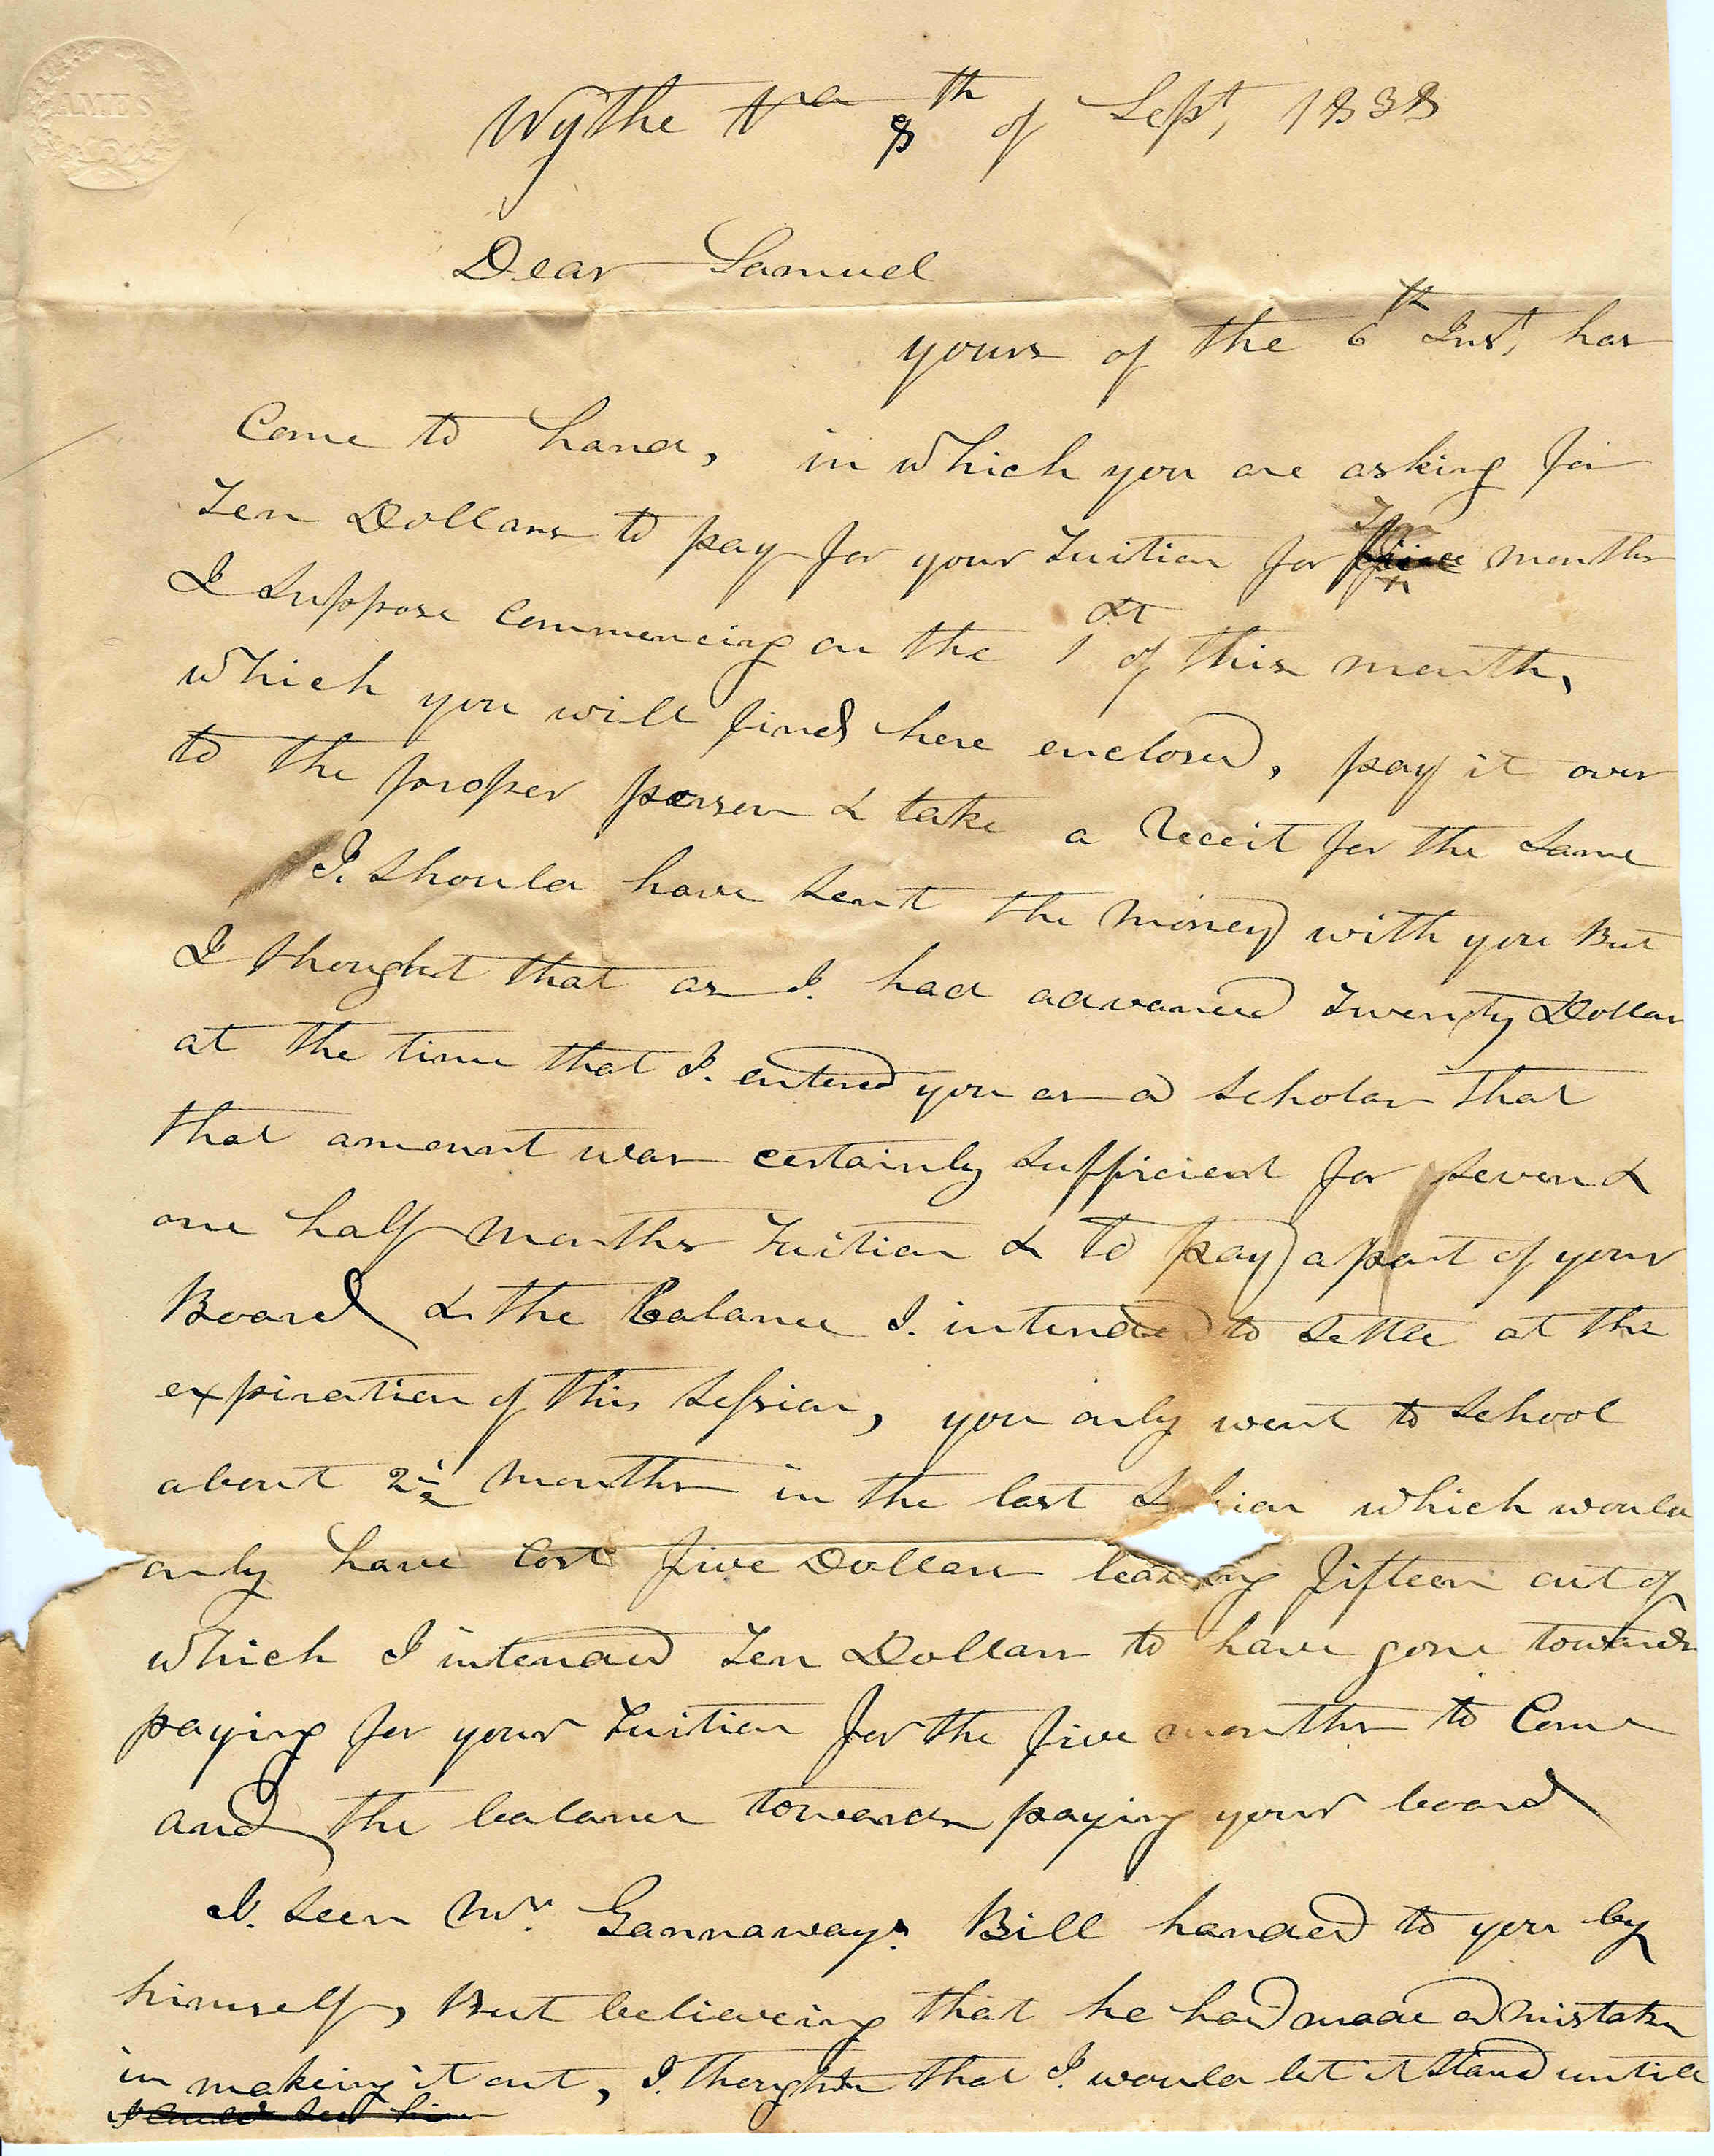 AMES
Wythe Va 8th of Sept, 1838
Dear Samuel
yours of the 6th Inst, has
Come to hand, in which you are asking for
Ten Dollars to pay for your Tuition for five Ten months
I Suppose Commencing on the 1st of this month,
which you will find here enclosed, pay it over
to the proper person & take a Receit for the Same
I. Should have Sent the money with you But
I thought that as I. had advanced Twenty Dollars
at the time that I. entered you as a Scholar that
that amount was certainly Sufficient for Seven &
one half Months Tuition & to pay a part of your
Board & the Balance I. intended to Settle at the
expiration of this Session, you only went to School
about 2½ Months in the last Session which would
only have Cost five Dollars leaving fifteen out of
which I intended Ten Dollars to have gone towards
paying for your Tuition for the five months to Come
and the balance towards paying your board
I. Seen Mr. Gannaways Bill handed to you by
himself, But believeing that he had made a mistake
in making it out, I. thought that I. would let it Stand untill
I could See him